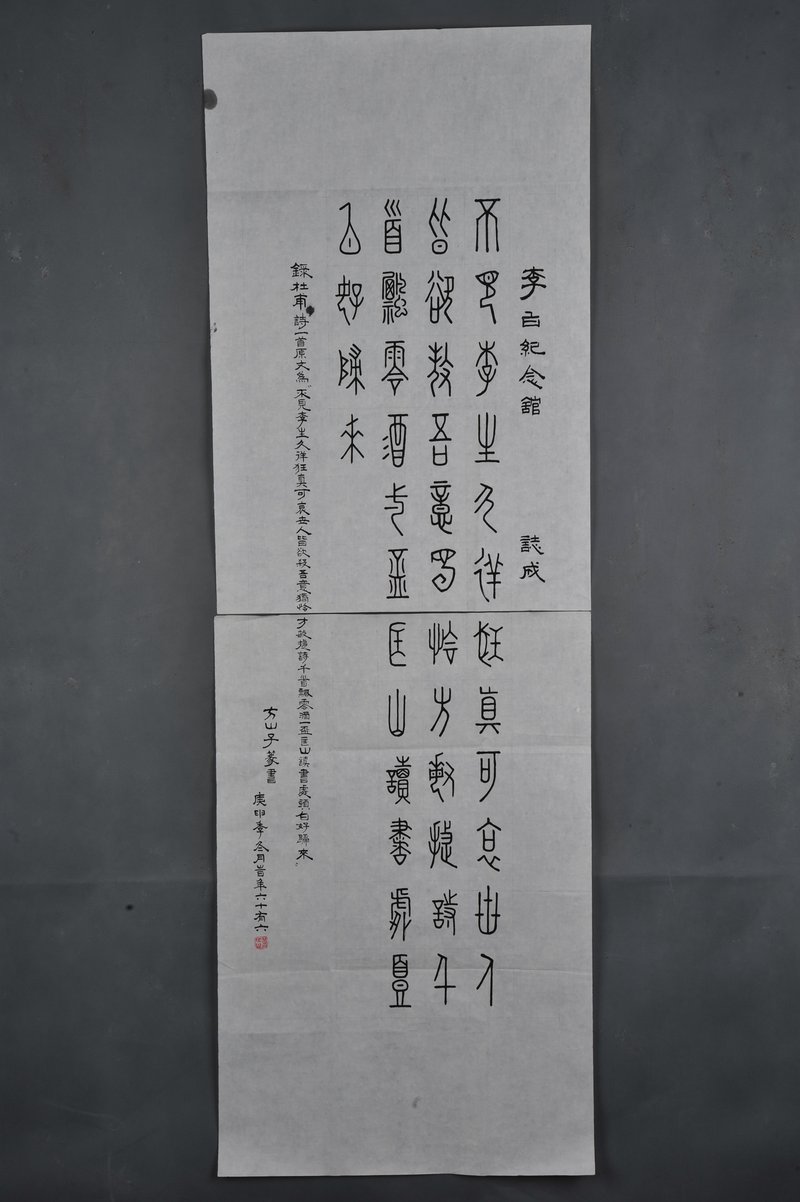 李白紀念舘 誌成
不見李生久佯狂真可哀世人
皆欲殺吾意獨怜才敏捷詩千
首飄零酒一盃匡山讀書處頭
白好歸來
録杜甫詩一首原文為不見李生久佯狂真可哀世人皆欲殺吾意獨怜才敏捷詩千首飄零酒一盃匡山讀書處頭白好歸來
方山子篆書
庚申季冬月 年六十有六